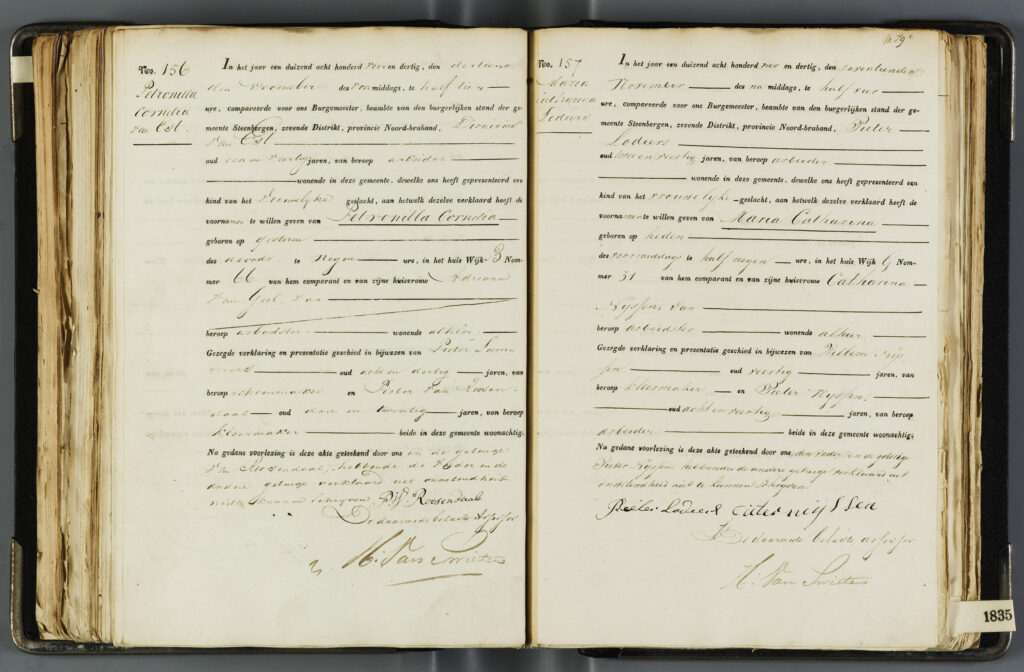 No. 156
Petronella
Cornelia
van Est.
In het jaar een duizend acht honderd vier en dertig, den dertiende
den November des voormiddags, te half tien
ure, compareerde voor ons Burgemeester, beambte van den burgerlijken stand der ge-
meente Steenbergen, zevende Distrikt, provincie Noord-braband, Dionisius
van Est
oud een en veertig jaren, van beroep arbeider
wonende in deze gemeente, dewelke ons heeft gepresenteerd een
kind van het Vrouwelyke geslacht, aan hetwelk dezelve verklaard heeft de
voornamen te willen geven van Petronella Cornelia
geboren op gisteren
des avonds te Negen ure, in het huis Wijk 3 Nom-
mer 66 van hem comparant en van zijne huisvrouw Adriana
van Geel, van
beroep arbeidster wonende alhier
Gezegde verklaring en presentatie geschied in bijwezen van Pieter Lam-
oud acht en dertig jaren, van
beroep schoenmaker en Pieter van Roosen-
daal oud drie en twintig jaren, van beroep
beide in deze gemeente woonachtig.
Na gedane voorlezing is deze akte geteekend door ons en de getuige
van Roosendaal, hebbende de Vader en de
andere getuige verklaard uit onwetendheid
niet te kunnen Schrijven P: V: Roosendaal
De daarmede belaste Assessor
H. Van Swieten
No. 157
Maria
Catharina
Lodiers
In het jaar een duizend acht honderd vier en dertig, den zeventienden
November des na middags, te half vier
ure, compareerde voor ons Burgemeester, beambte van den burgerlijken stand der ge-
meente Steenbergen, zevende Distrikt, provincie Noord-braband, Pieter
Lodiers
oud twee en veertig jaren, van beroep arbeider
wonende in deze gemeente, dewelke ons heeft gepresenteerd een
kind van het vrouwelijke geslacht, aan hetwelk dezelve verklaard heeft de
voornamen te willen geven van Maria Catharina
geboren op heden
des voormiddags te half negen ure, in het huis Wijk G Nom-
mer 31 van hem comparant en van zijne huisvrouw Catharina
Nyssen, van
beroep arbeidster wonende alhier
Gezegde verklaring en presentatie geschied in bijwezen van Willem Nys
sen oud veertig jaren, van
beroep kleermaker en Pieter Nyssen,
oud acht en veertig jaren, van beroep
arbeider beide in deze gemeente woonachtig.
Na gedane voorlezing is deze akte geteekend door ons, den vader en de getuige
Pieter Nyssen hebbende de andere getuige verklaard uit
onwetendheid niet te kunnen schryven
Pieter Lodiers Pieter neyssen
De daarmede belaste assessor
H. Van Swieten
1835